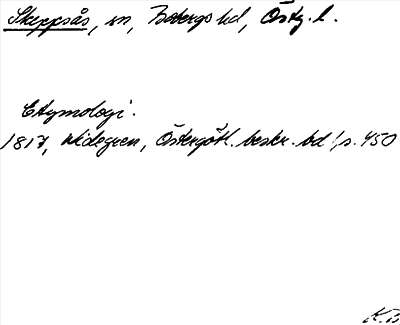 Skeppsås, sn, Bobergs hd, Östg. l.
Etymologi.
1817, Widegren, Östergötl. beskr. bd 1, s. 450